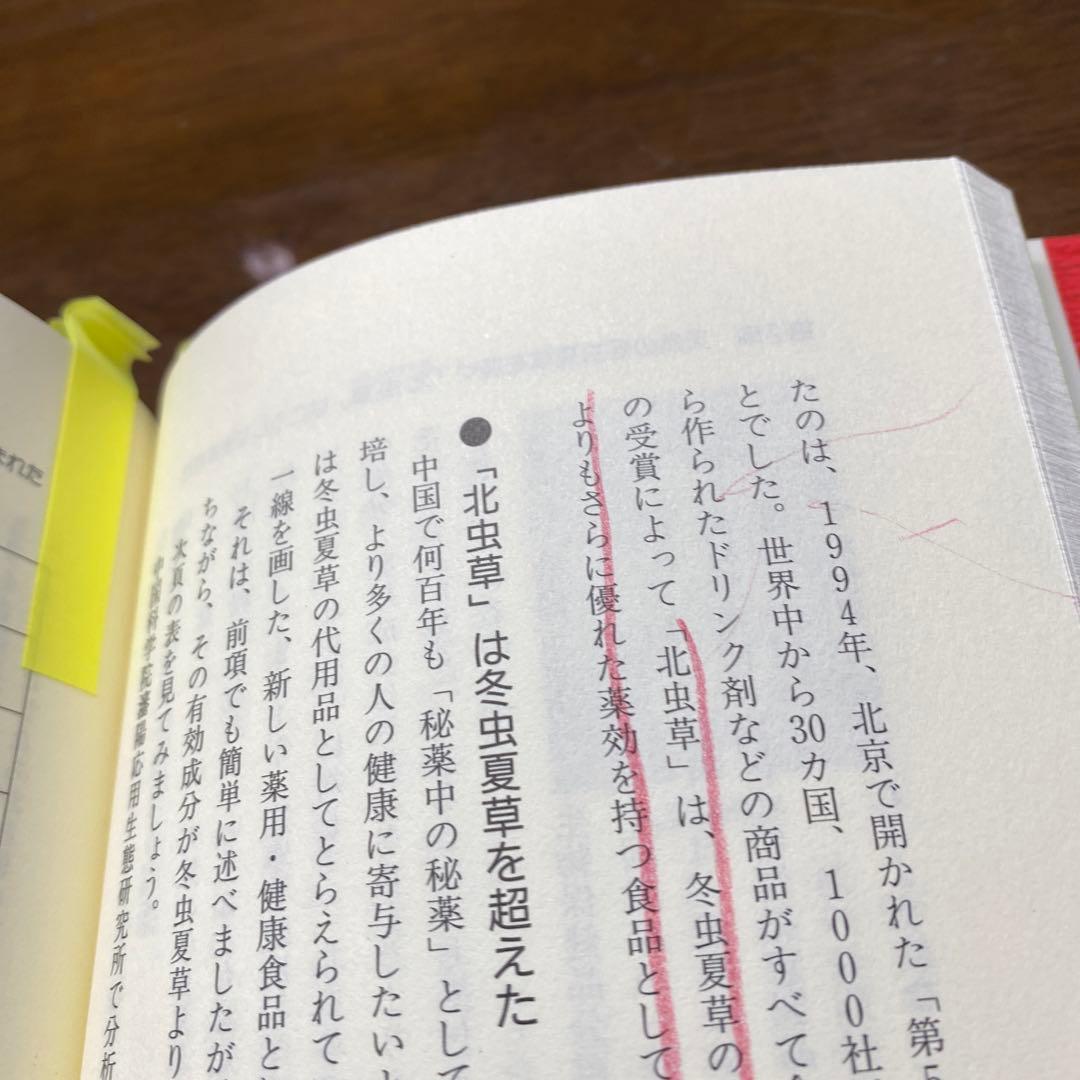 たのは、1994年、北京で開かれた「第5
とでした。世界中から30カ国、1000社
ら作られたドリンク剤などの商品がすべて
の受賞によって「北虫草」は、冬虫夏草の
よりもさらに優れた薬効を持つ食品として
●「北虫草」は冬虫夏草を超えた
中国で何百年も「秘薬中の秘薬」として
培し、より多くの人の健康に寄与したい
は冬虫夏草の代用品としてとらえられて
一線を画した、新しい薬用・健康食品と
それは、前項でも簡単に述べましたが
ちながら、その有効成分が冬虫夏草より
次頁の表を見てみましょう。
中国科学院瀋陽応用生態研究所で分析
れた